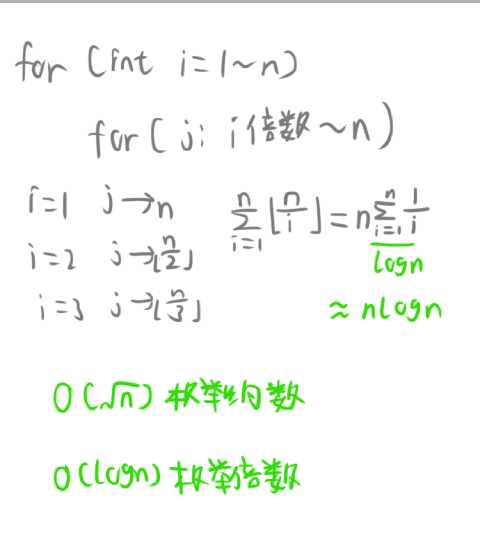 for (int i=1~n)
for( j: i倍数~n)
i=1 j→n
i=2 j→⌊n/2⌋
i=3 j→⌊n/3⌋
n∑i=1 ⌊n/i⌋ = n n∑i=1 1/i
logn
≈ nlogn
O(√n) 枚举约数
O(logn) 枚举倍数